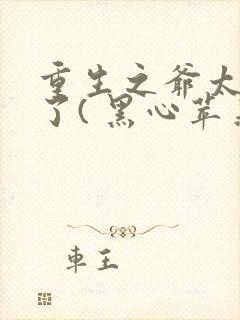 重生之爷太
了(黑心苹
車王